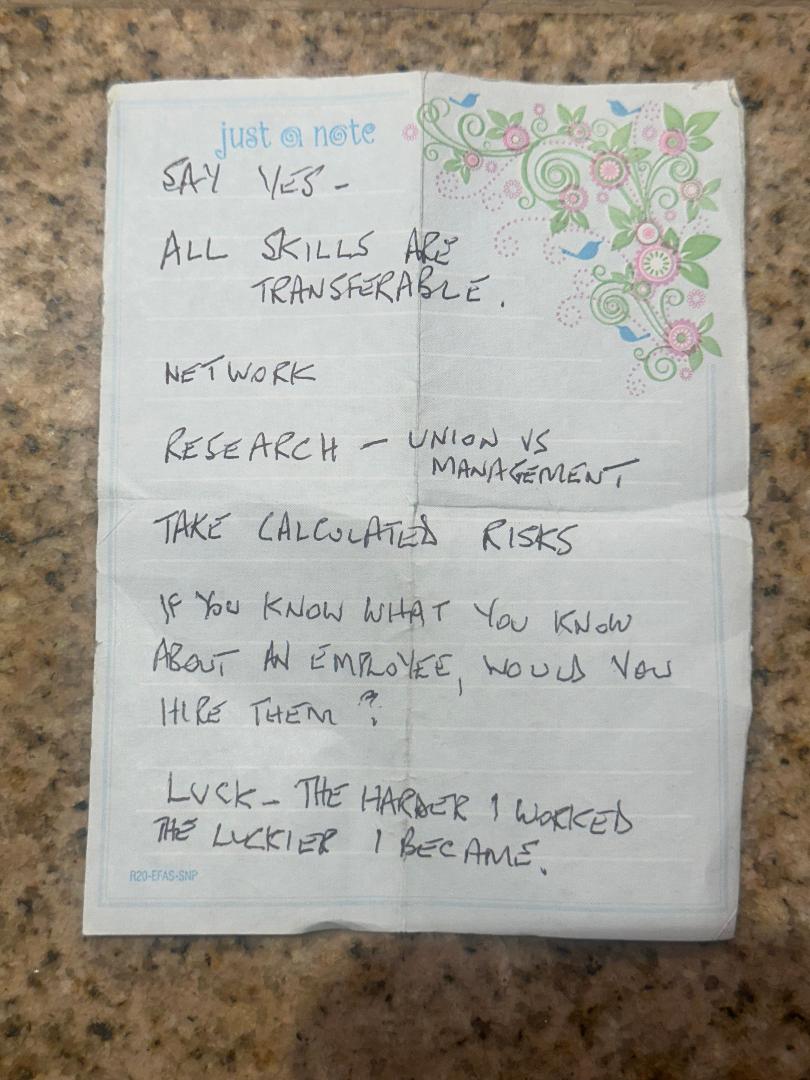 just a note
SAY YES -
ALL SKILLS ARE
TRANSFERABLE.
NETWORK
RESEARCH - UNION VS
MANAGEMENT
TAKE CALCULATED RISKS
IF YOU KNOW WHAT YOU KNOW
ABOUT AN EMPLOYEE, WOULD YOU
HIRE THEM?
LUCK - THE HARDER I WORKED
THE LUCKIER I BECAME.
R20-EFAS-SNP